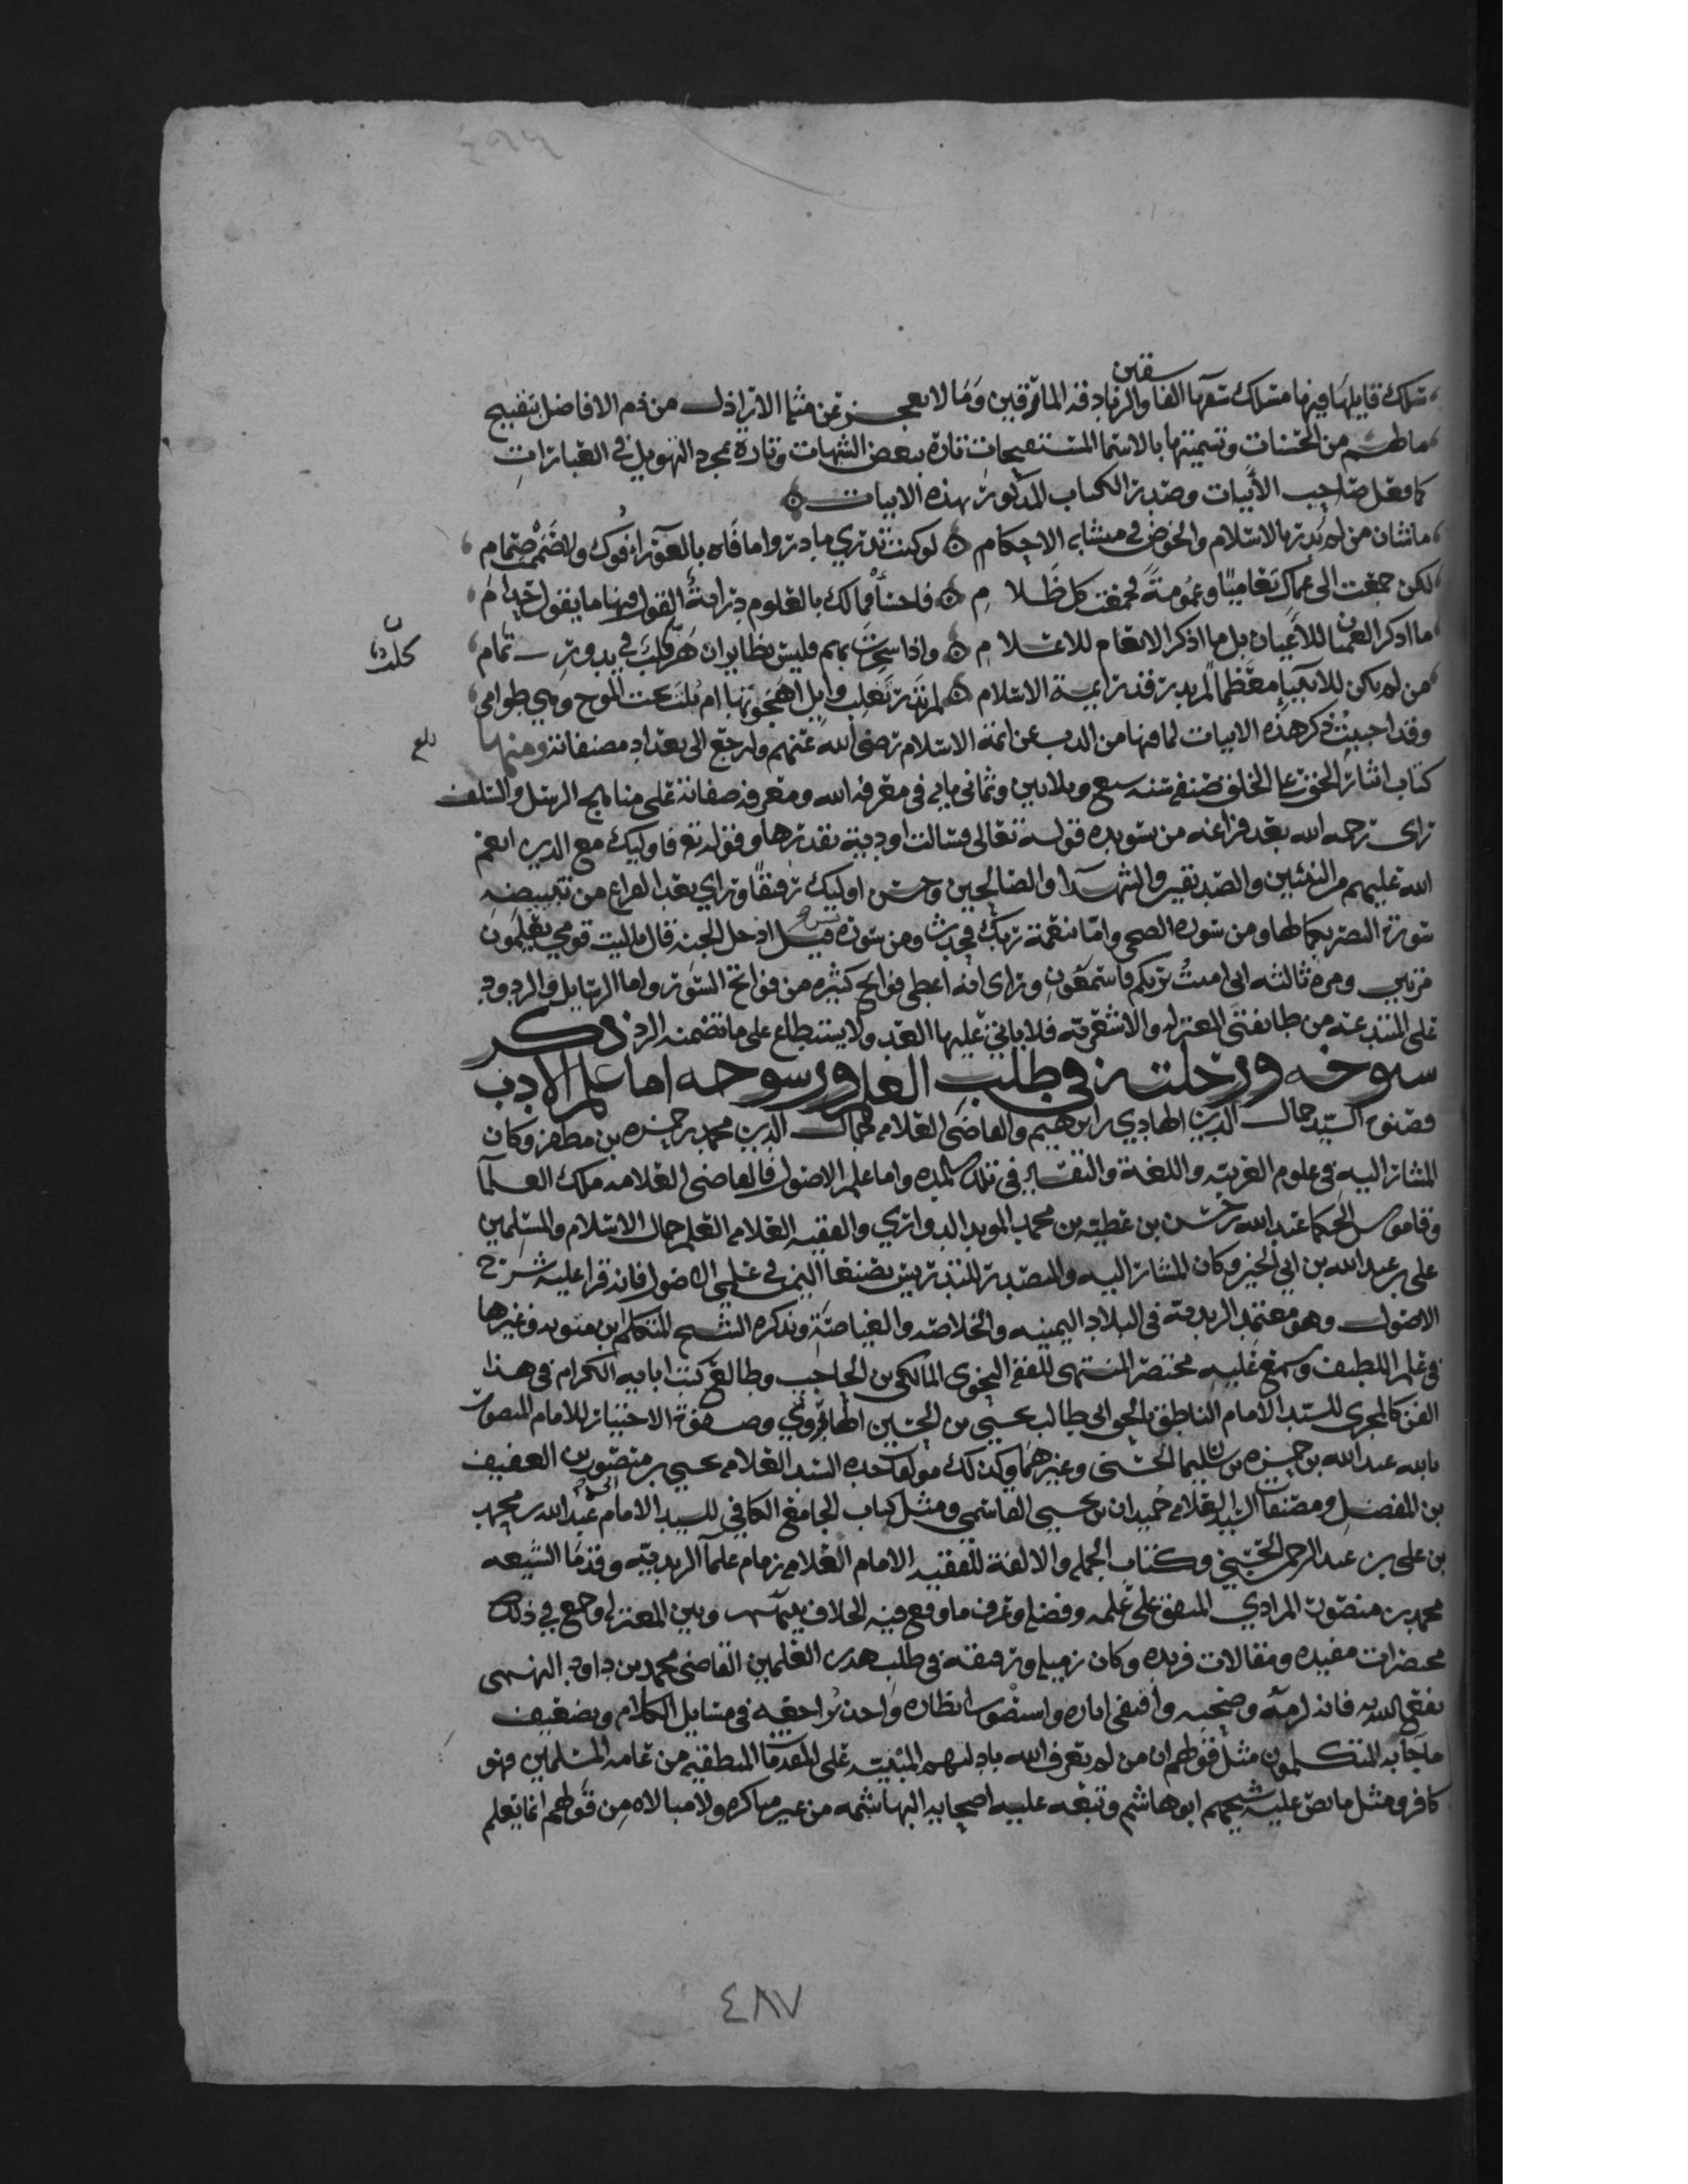 سلك قايلها فيها مسلك شعرا الفاسقين والزنادقة المارقين وما لا يعجز عن مثله الاراذل من ذم الافاضل بتقبيح
مالهم من الحسنات وتسميتها بالاسما المستقبحات تارة ببعض الشبهات وتارة بمجرد التهويل في العبارات
كما فعل صاحب الأبيات وصدر الكتاب المذكور بهذه الابيات
ما شان من لم يدر بالاسلام والخوض في متشابه الاحكام لو كنت تدري ما دروا ما فاه بالعوراء فوك ولا صممت صمام
لكن جمعت الى عماك تعاميا وعمومة فجمعت كل ظلام فاخسأ فما لك بالعلوم دراية القول فيها ما يقول حذام
ما اذكر العميان للأعيان بل ما اذكر الانعام للاعلام واذا سخرت بهم فليس بظاير ان هر كلب في بدور تمام
من لم يكن للانبياء معظما لم يدر قدر ايمة الاسلام لم تدر تغلب وايل اهجوتها ام بلت تحت الموج وهي طوامي
وقد احببت ذكر هذه الابيات لما فيها من الذب عن ائمة الاسلام رضي الله عنهم ولنرجع الى تعداد مصنفاته ومنها
كتاب ايثار الحق على الخلق صنفه سنه سبع وثلاثين وثماني مايه في معرفه الله ومعرفه صفاته على مناهج الرسل والسلف
راى رحمه الله بعد فراغه من تسويده قوله تعالى فسالت اودية بقدرها وقوله تع فاوليك مع الذين انعم
الله عليهم من النبيين والصديقين والشهداء والصالحين وحسن اوليك رفيقا وراي بعد الفراغ من تبييضه
سورة النصر بكمالها ومن سوره الضحى وامّا بنعمة ربك فحدث ومن سورة يس قيل ادخل الجنه قال ياليت قومي يعلمون
مرتين ومره ثالثه اني امنت بربكم فاسمعون وراى انه اعطي فواتح كثيره من فواتح السور واما الرسايل والردود
على المبتدعه من طايفتى المعتزله والاشعريه فلا ياتي عليها العد ولا يستطاع على ما تضمنه الرد ذكر
شيوخه ورحلته في طلب العلم ورسوخه اما علم الادب
فصنوه السيد جمال الدين الهادي بن ابرهيم والقاضي العلامه جمال الدين محمد بن حمزه بن مظفر وكان
المشار اليه في علوم العربيه واللغة والتفسير في تلك المده واما علم الاصول فالقاضي العلامه ملك العلما
وقاموس الحكما عبد الله بن حسن بن عطيه بن محمد المويد الدواري والفقيه العلامه العلم جمال الاسلام والمسلمين
علي بن عبد الله بن ابي الخير وكان المشار اليه والمتصدر للتدريس بصنعا اليمن في علمي الاصول فانه قرا عليه شرح
الاصول وهو معتمد الزيديه في البلاد اليمنيه والخلاصه والغياصة وتذكره الشيخ المتكلم ابن متويه وغيرها
في علم اللطيف وسمع عليه مختصر المنتهى للفقيه النحوي المالكي بن الحاجب وطالع كتب ابايه الكرام في هذا
الفن كالمجزي للسيد الامام الناطق بالحق ابي طالب يحيى بن الحسين الهاروني وصفوة الاختيار للامام المنصور
بالله عبد الله بن حمزه بن سليمان الحسني وغيرهما وكذلك مولفات جده السيد العلامه يحيى بن منصور بن العفيف
بن المفضل ومصنفات السيد العلامه حميدان بن يحيى القاسمي ومثل كتاب الجامع الكافي للسيد الامام ابي عبد الله بن محمد
بن علي بن عبد الرحمن الحسني وكتاب الجمله والالفة للفقيه الامام العلامه زمام علما الزيديه وقدما الشيعه
محمد بن منصور المرادي المتفق على علمه وفضله وعرف ما وقع فيه الخلاف بينهم وبين المعتزله وجمع في ذلك
مختصرات مفيده ومقالات فريده وكان زميله ورفيقه في طلب هذين العلمين القاضي محمد بن داود النهمي
نفع الله به فانه لزمه وصحبه واقتفى اثاره واستضوا انظاره واحذ براحعه في مسايل الكلام وتضعيف
ما جا به المتكلمون مثل قولهم ان من لم يعرف الله بادلتهم المبنيه على المقدمات المنطقيه من عامه المسلمين فهو
كافر ومثل ما نص عليه شيخهم ابو هاشم وتبعه عليه اصحابه البهاشمه من غير مناكره ولا مبالاه من قولهم انما يعلم
بلغ
٤٨٧